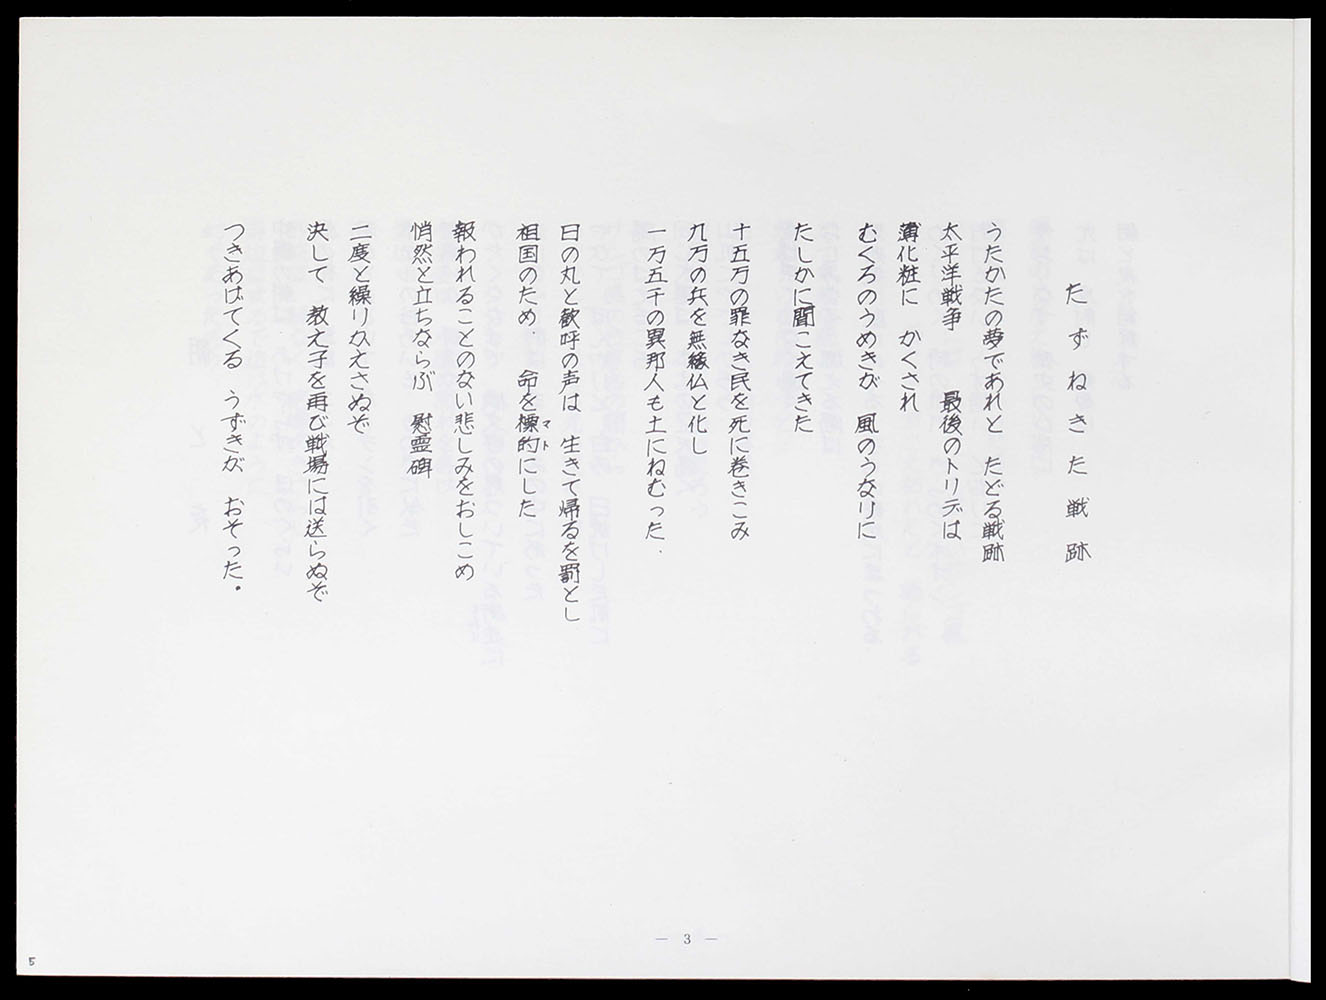 たずねきた戦跡
うたかたの夢であれと　たどる戦跡
太平洋戦争　最後のトリデは
薄化粧に　かくされ
むくろのうめきが　風のうなりに
たしかに聞こえてきた
十五万の罪なき民を死に巻きこみ
九万の兵を無縁仏と化し
一万五千の異邦人も土にねむった．
日の丸と歓呼の声は　生きて帰るを罰とし
祖国のため　命を標的にした
マト
報われることのない悲しみをおしこめ
悄然と立ちならぶ　慰霊碑
二度と繰りかえさぬぞ
決して　教え子を再び戦場には送らぬぞ
つきあげてくる　うずきが　おそった．
— 3 —
5